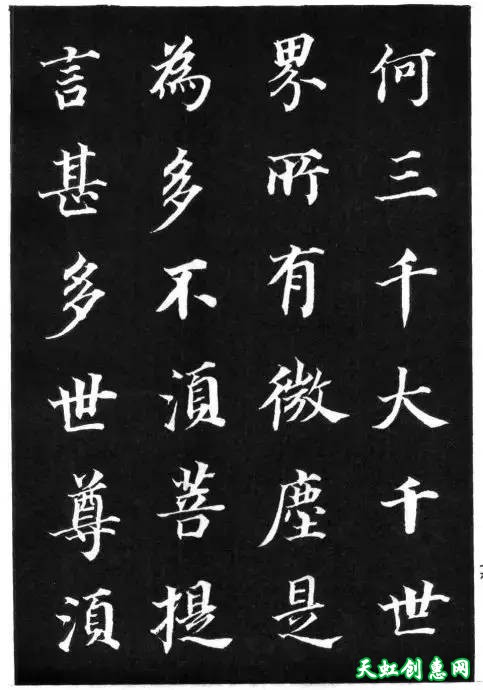 何三千大千世
界所有微塵是
為多不須菩提
言甚多世尊須
天虹创惠网